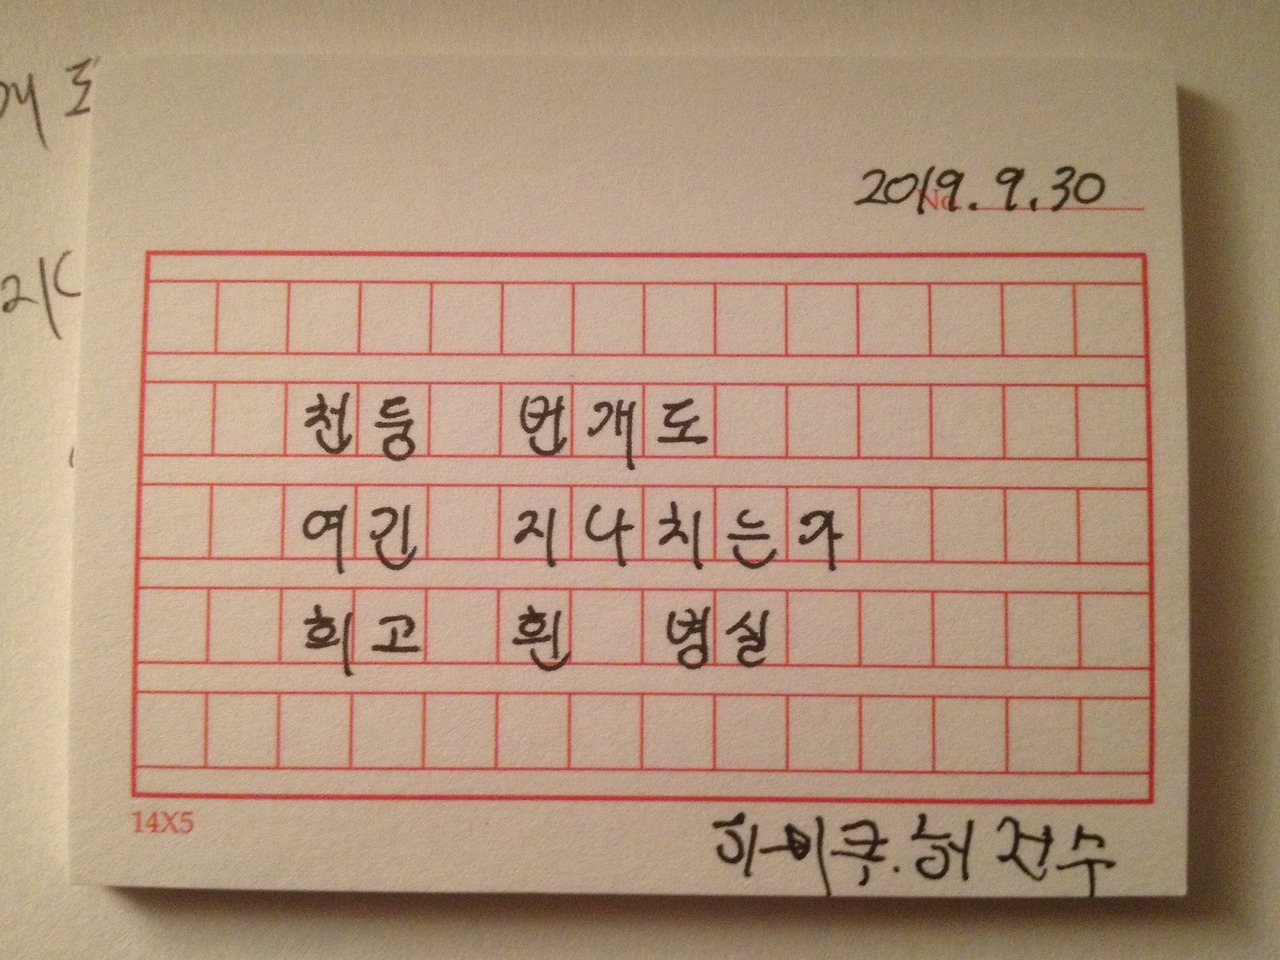 2019. 9. 30
No.
천둥 번개도
여긴 지나치는가
희고 흰 병실
14X5
하이쿠. 허전수